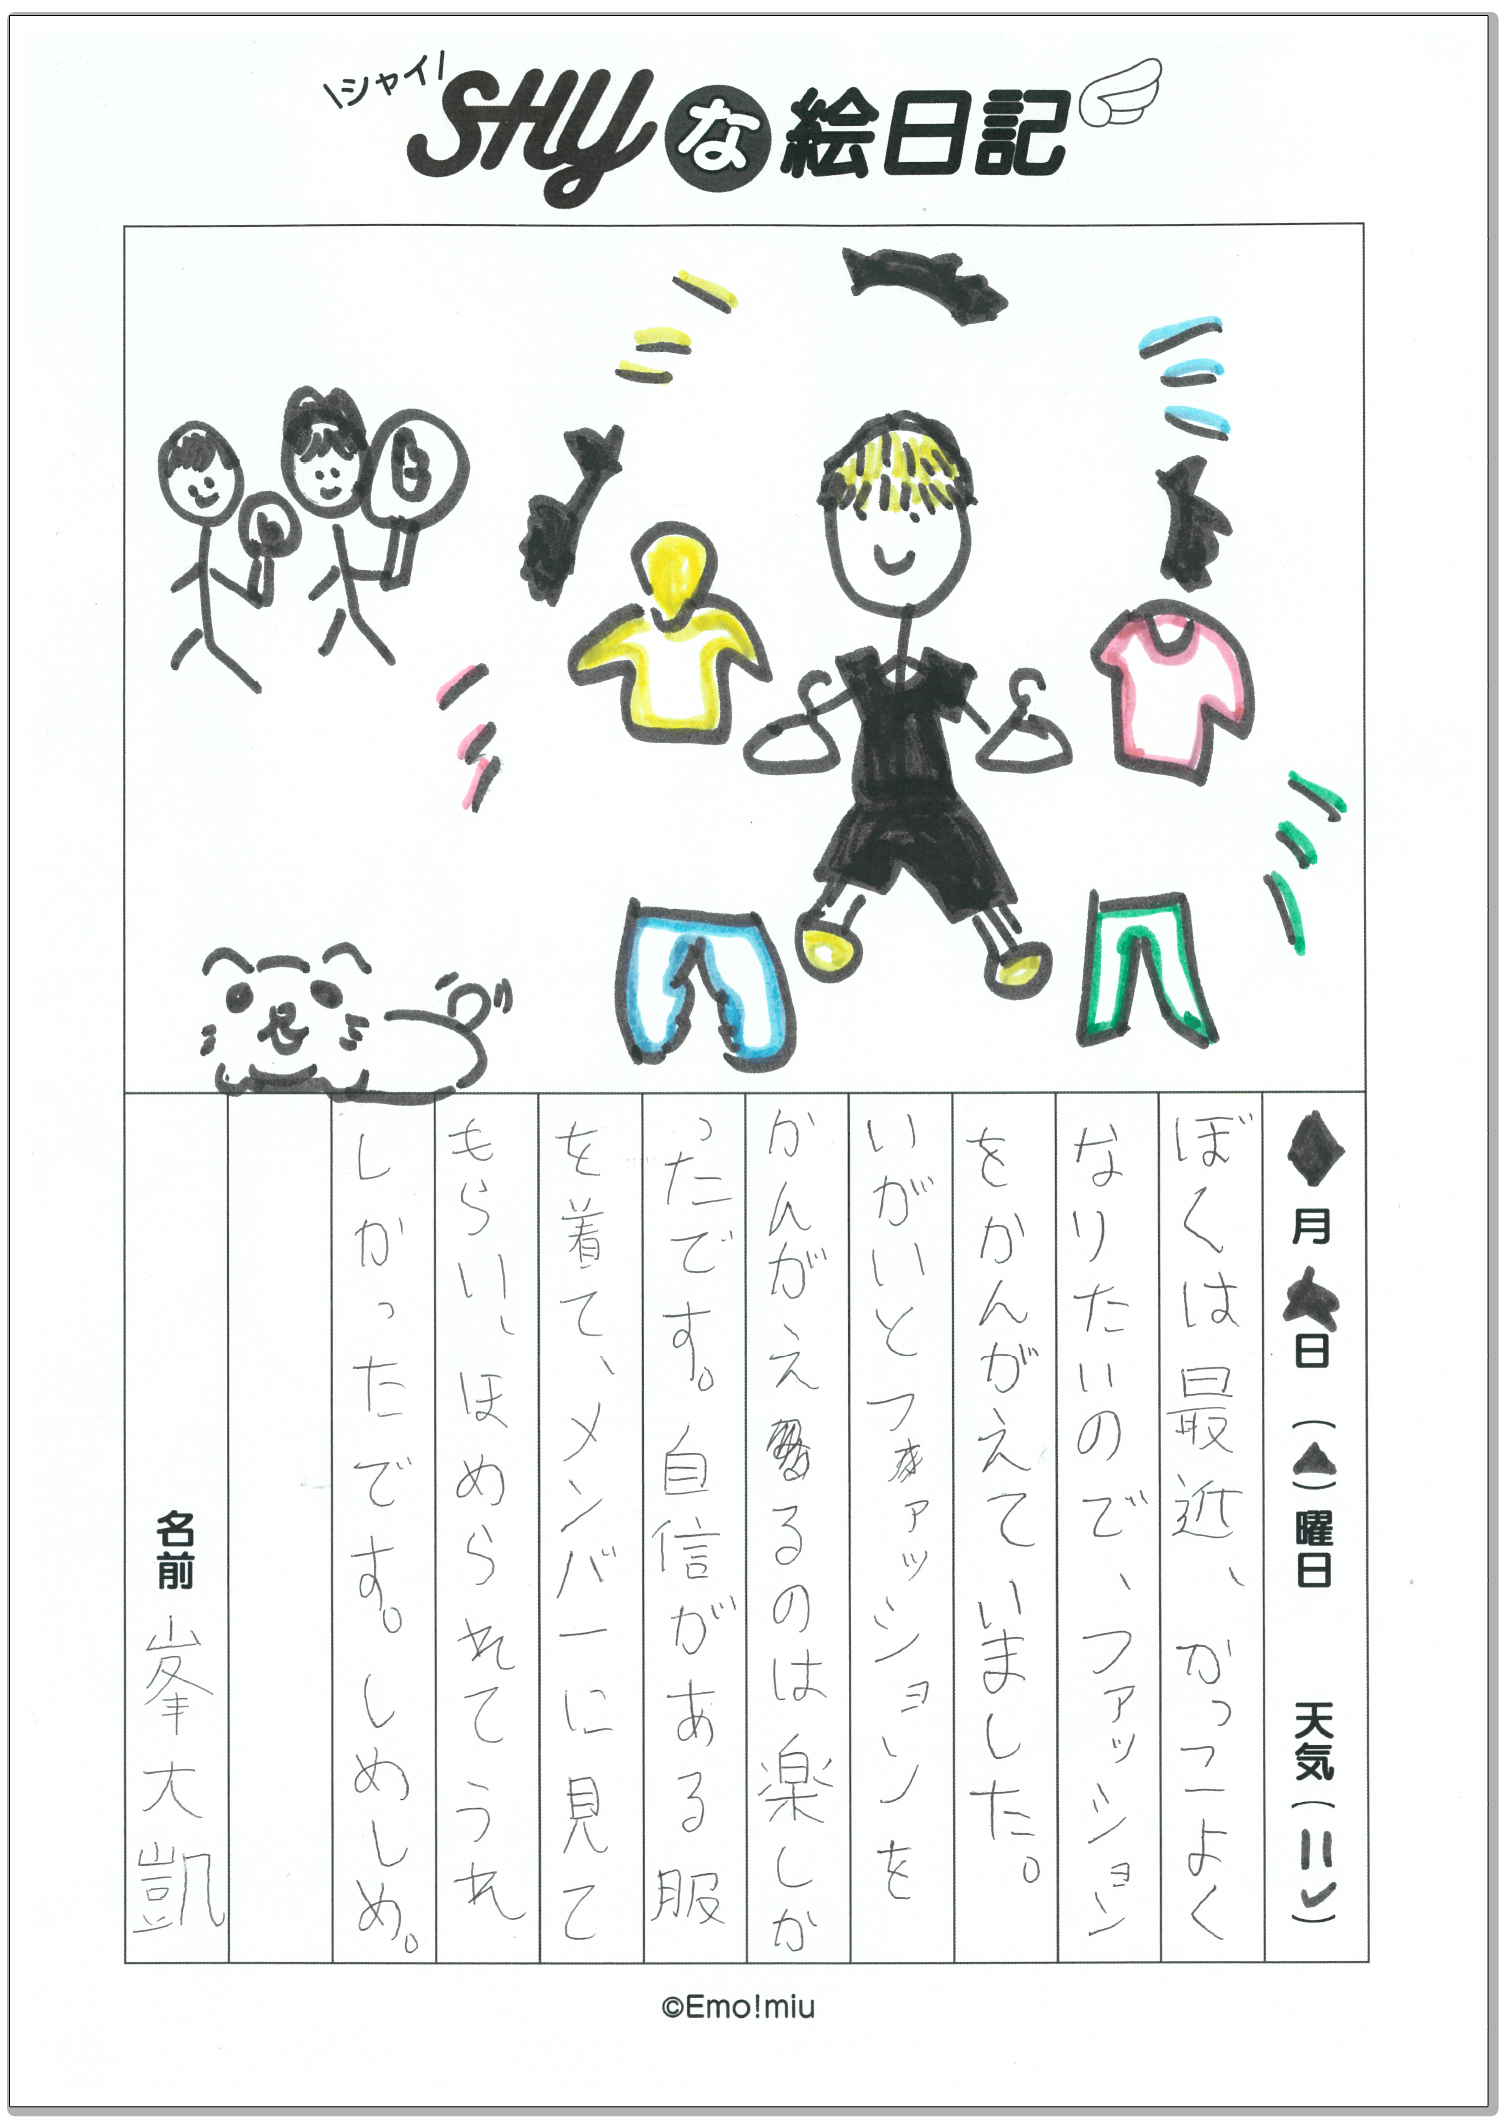 \シャイ/
SHYな絵日記
月 日 ( )曜日 天気( )
ぼくは最近、かっこよく
なりたいので、ファッション
をかんがえていました。
いがいとファッションを
かんがえるのは楽しか
ったです。自信がある服
を着て、メンバーに見て
もらい、ほめられてうれ
しかったです。しめしめ。
名前 峯大凱
©Emo!miu